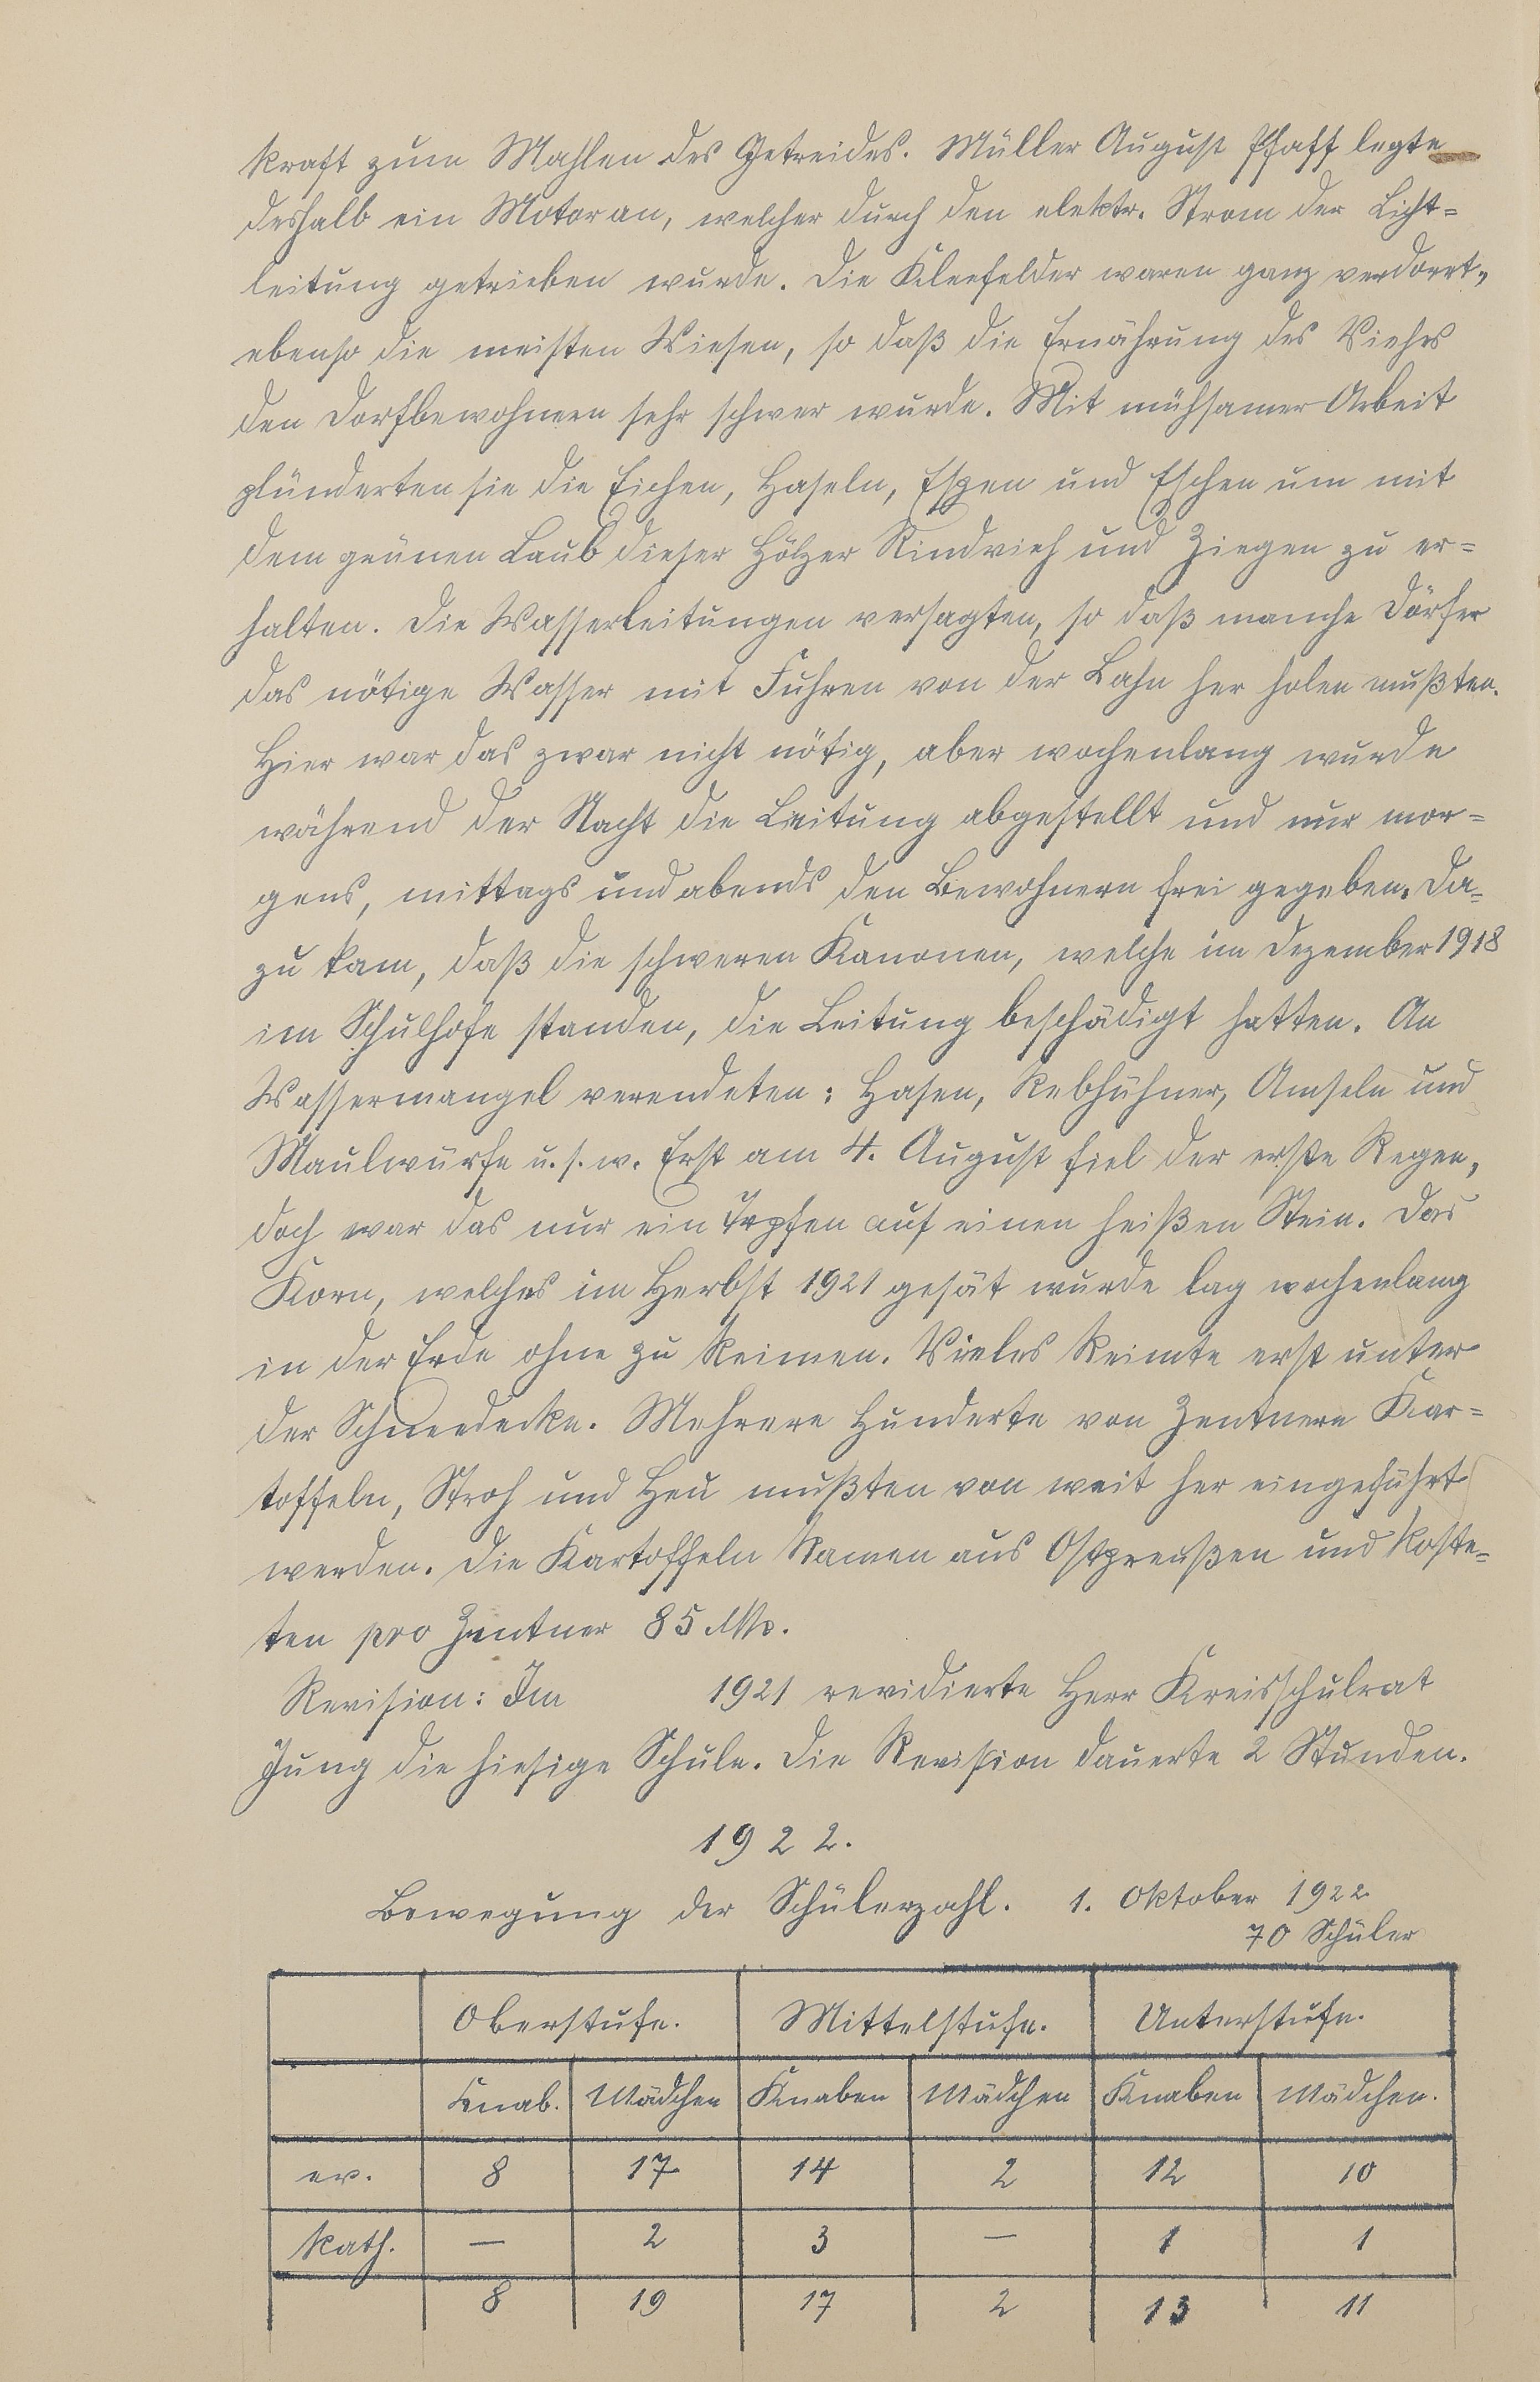 kraft zum Mahlen des Getreides. Müller August Pfaff legte
deshalb ein Motor an, welcher durch den elektr. Strom der Licht=
leitung getrieben wurde. Die Kleefelder waren ganz verdorrt,
ebenso die meisten Wiesen, so daß die Ernährung des Viehes
den Dorfbewohnern sehr schwer wurde. Mit mühsamer Arbeit
plünderten sie die Eichen, Haseln, Espen und Eschen um mit
dem grünen Laub dieser Hölzer Rindvieh und Ziegen zu er=
halten. Die Wasserleitungen versagten, so daß manche Dörfer
das nötige Wasser mit Fuhren von der Lahn her holen mußten.
Hier war das zwar nicht nötig, aber wochenlang wurde
während der Nacht die Leitung abgestellt und nur mor=
gens, mittags und abends den Bewohnern frei gegeben. Da=
zu kam, daß die schweren Kanonen, welche im Dezember 1918
im Schulhofe standen, die Leitung beschädigt hatten. An
Wassermangel verendeten: Hasen, Rebhühner, Amseln und
Maulwürfe u.s.w. Erst am 4. August fiel der erste Regen,
doch war das nur ein Tropfen auf einen heißen Stein. Das
Korn, welches im Herbst 1921 gesät wurde lag wochenlang
in der Erde ohne zu keimen. Vieles keimte erst unter
der Schneedecke. Mehrere Hunderte von Zentnern Kar=
toffeln, Stroh und Heu mußten von weit her eingeführt
werden. Die Kartoffeln kamen aus Ostpreußen und koste=
ten pro Zentner 85 Mk.
Revision: Im 1921 revidierte Herr Kreisschulrat
Jung die hiesige Schule. Die Revision dauerte 2 Stunden.
1922.
Bewegung der Schülerzahl. 1. Oktober 1922
70 Schüler
Oberstufe. Mittelstufe. Unterstufe.
Knab. Mädchen Knaben Mädchen Knaben Mädchen.
ev. 8 17 14 2 12 10
kath. — 2 3 — 1 1
8 19 17 2 13 11